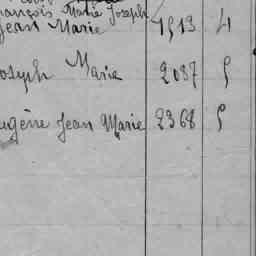 François Marie Joseph
Jean Marie 1513 4
Joseph Marie 2037 5
Eugène Jean Marie 2368 5